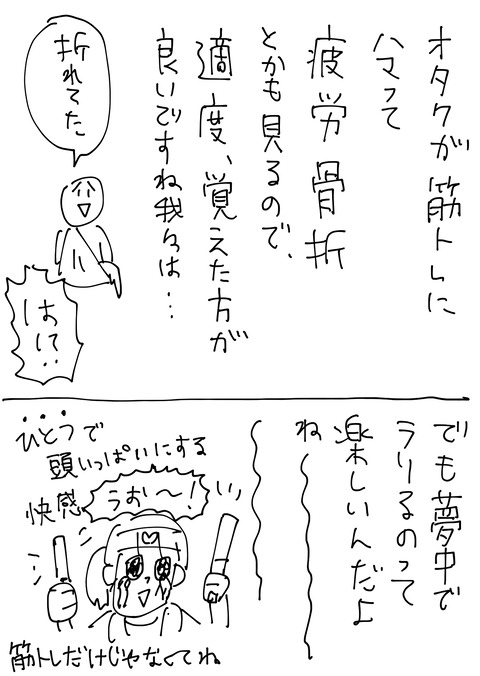 オタクが筋トレに
ハマって
疲労骨折
とかも見るので、
適度、覚えた方が
良いですね我々は…
折れてた
はにて…
でも夢中で
ラリるのって
楽しいんだよ
ね〜〜
ひとつで
頭いっぱいにする
快感
うお〜!
筋トレだけじゃなくてね